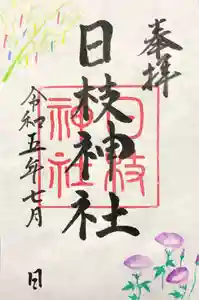 奉拝
日枝神社
日枝
神社
令和五年七月 日